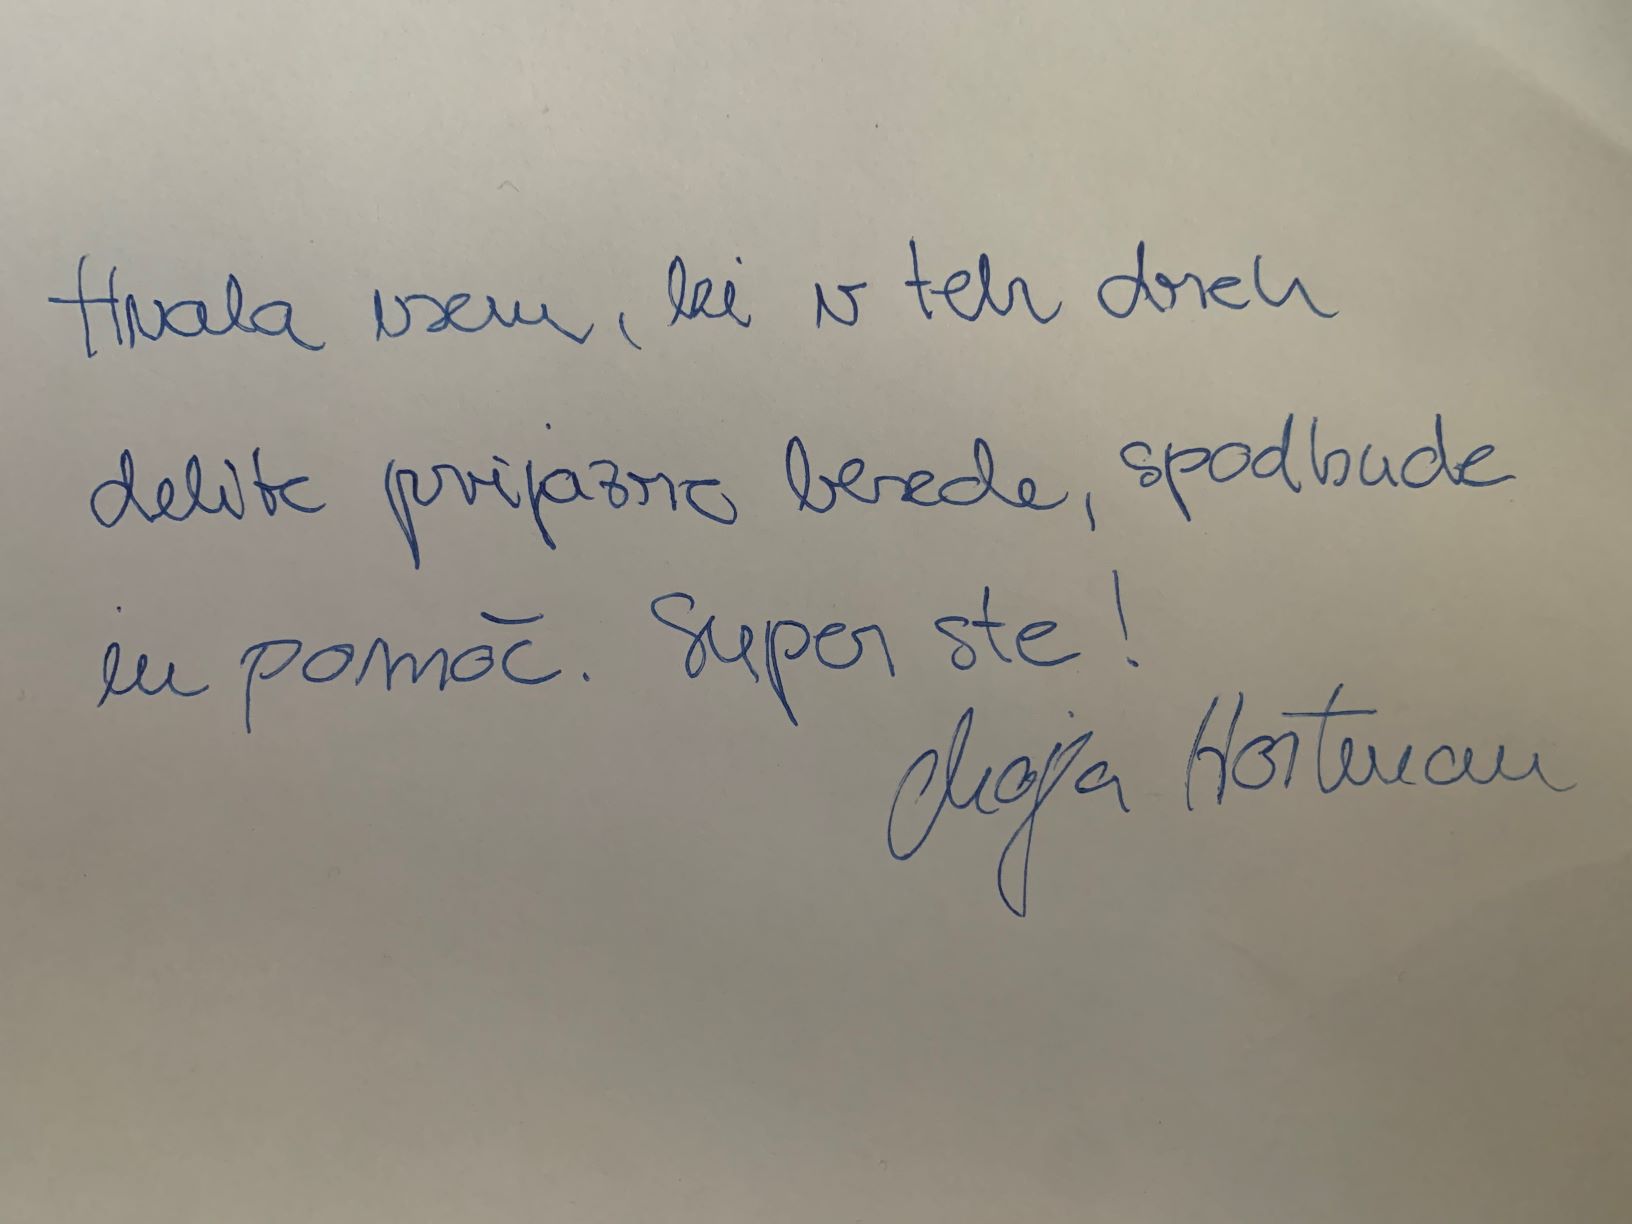 Hvala vsem, ki v teh dneh
delite prijazno besede, spodbude
in pomoč. Super ste!
Maja Hostnican